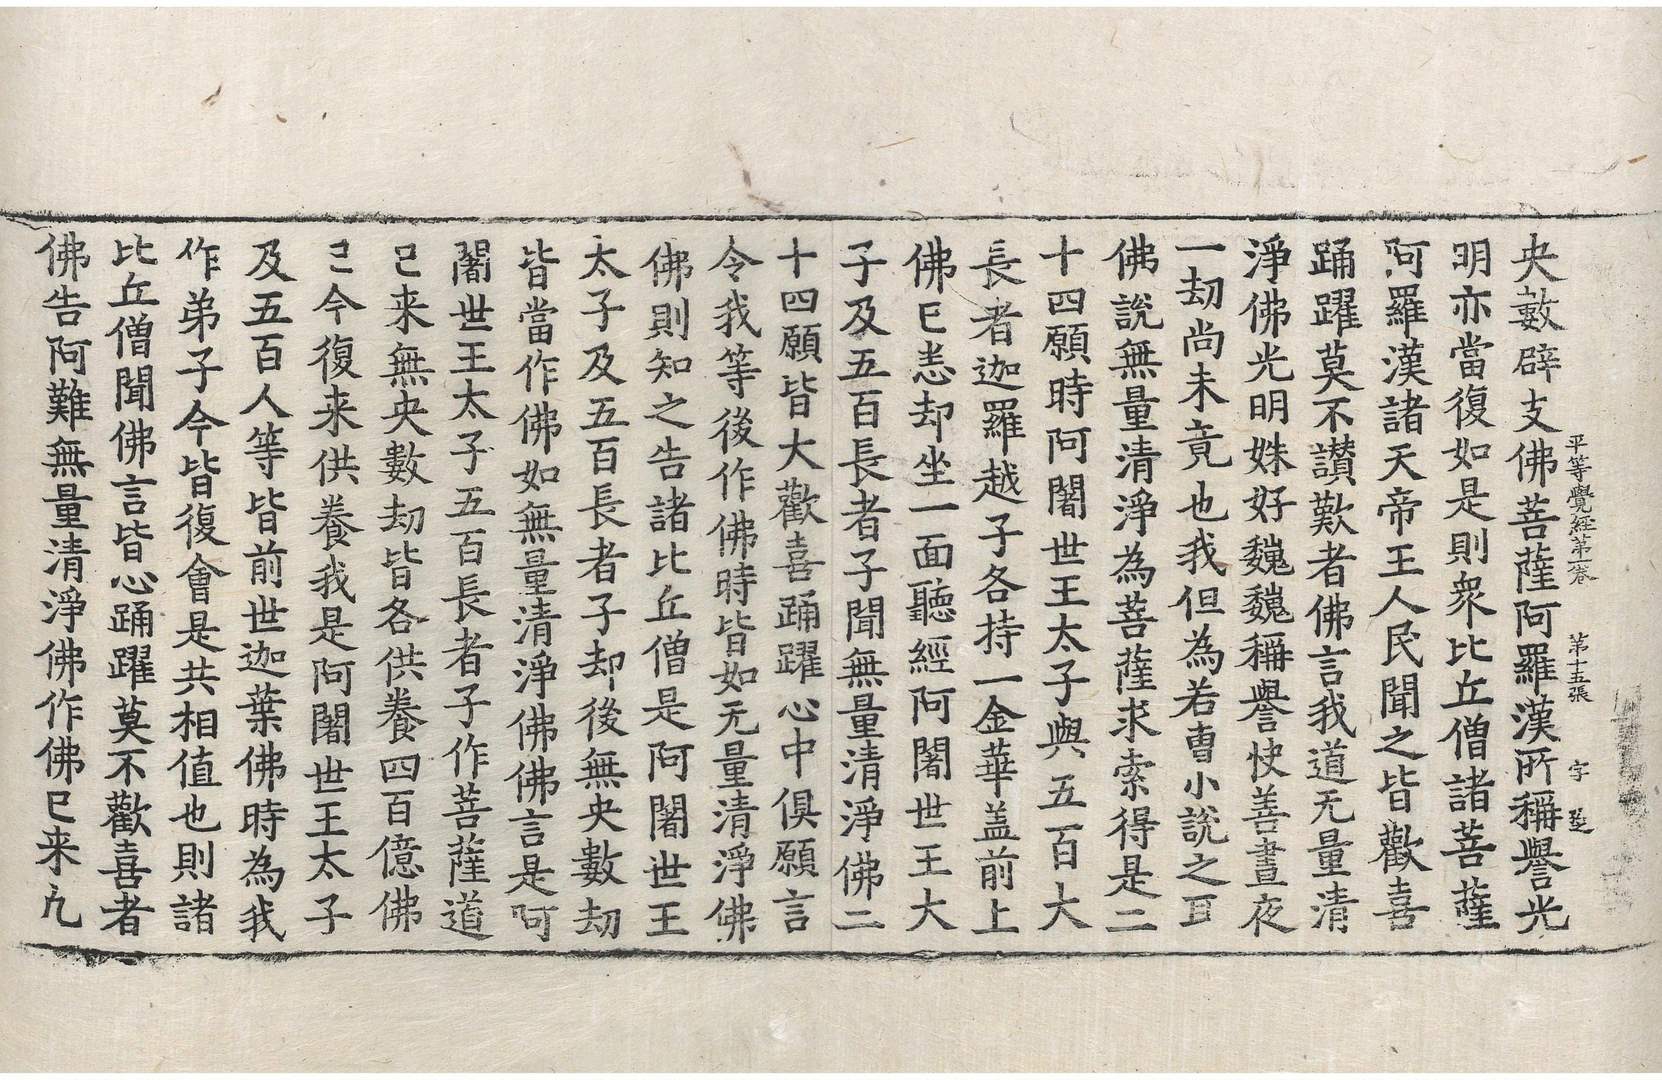 平等覺經第一卷 第十五張 字 楚
央數辟支佛菩薩阿羅漢所稱譽光
明亦當復如是則衆比丘僧諸菩薩
阿羅漢諸天帝王人民聞之皆歡喜
踊躍莫不讃歎者佛言我道无量清
淨佛光明姝好巍巍稱譽快善晝夜
一劫尚未竟也我但為若曹小說之耳
佛說無量清淨為菩薩求索得是二
十四願時阿闍世王太子與五百大
長者迦羅越子各持一金華盖前上
佛已恚却坐一面聽經阿闍世王大
子及五百長者子聞無量清淨佛二
十四願皆大歡喜踊躍心中俱願言
令我等後作佛時皆如无量清淨佛
佛則知之告諸比丘僧是阿闍世王
太子及五百長者子却後無央數劫
皆當作佛如無量清淨佛佛言是阿
闍世王太子五百長者子作菩薩道
已来無央數劫皆各供養四百億佛
已今復来供養我是阿闍世王太子
及五百人等皆前世迦葉佛時為我
作弟子今皆復會是共相值也則諸
比丘僧聞佛言皆心踊躍莫不歡喜者
佛告阿難無量清淨佛作佛已来凢